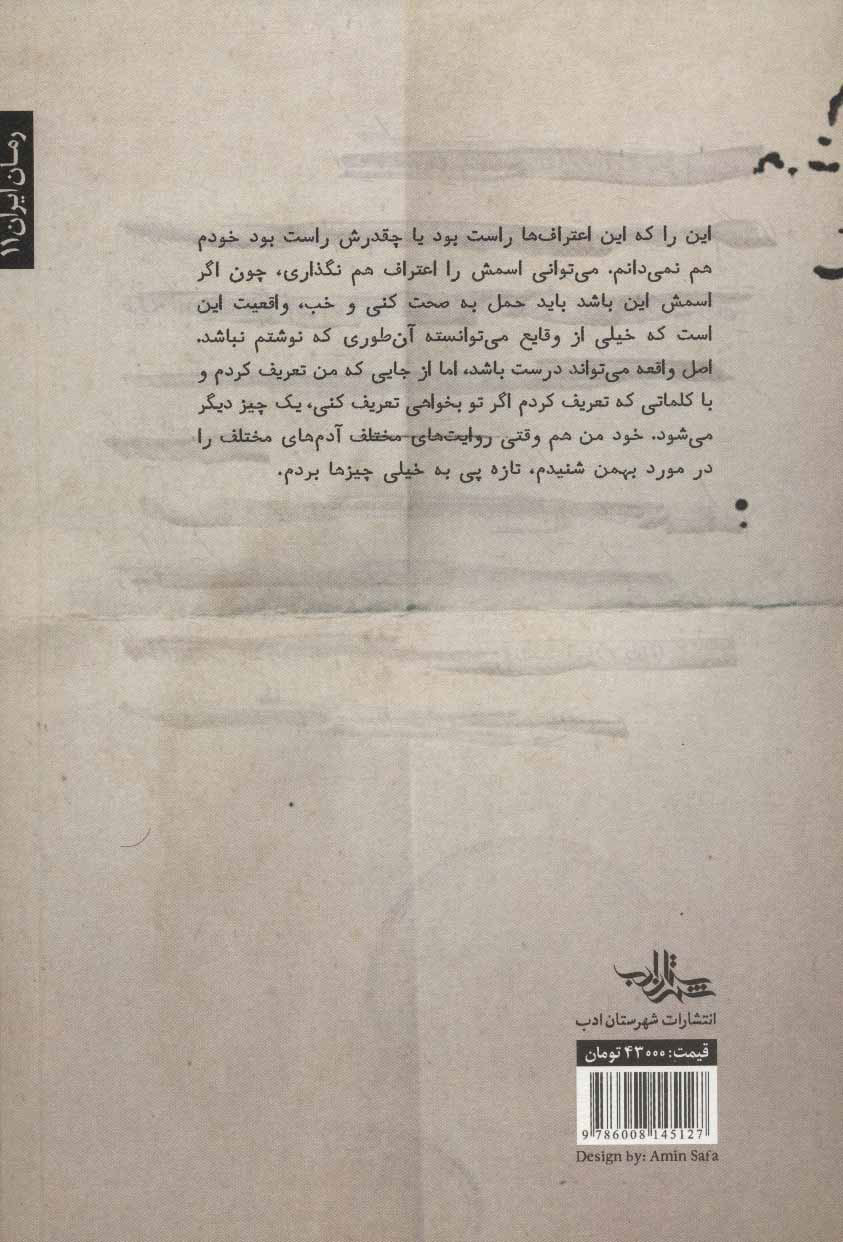 رمان ایران ۱۱
این را که این اعتراف‌ها راست بود یا چقدرش راست بود خودم
هم نمی‌دانم. می‌توانی اسمش را اعتراف هم نگذاری، چون اگر
اسمش این باشد باید حمل به صحت کنی و خب، واقعیت این
است که خیلی از وقایع می‌توانسته آن‌طوری که نوشتم نباشد.
اصل واقعه می‌تواند درست باشد، اما از جایی که من تعریف کردم و
با کلماتی که تعریف کردم اگر تو بخواهی تعریف کنی، یک چیز دیگر
می‌شود. خود من هم وقتی روایت‌های مختلف آدم‌های مختلف را
در مورد بهمن شنیدم، تازه پی به خیلی چیزها بردم.
شهرستان ادب
انتشارات شهرستان ادب
قیمت: ۴۳۰۰۰ تومان
9 786008 145127
Design by: Amin Safa